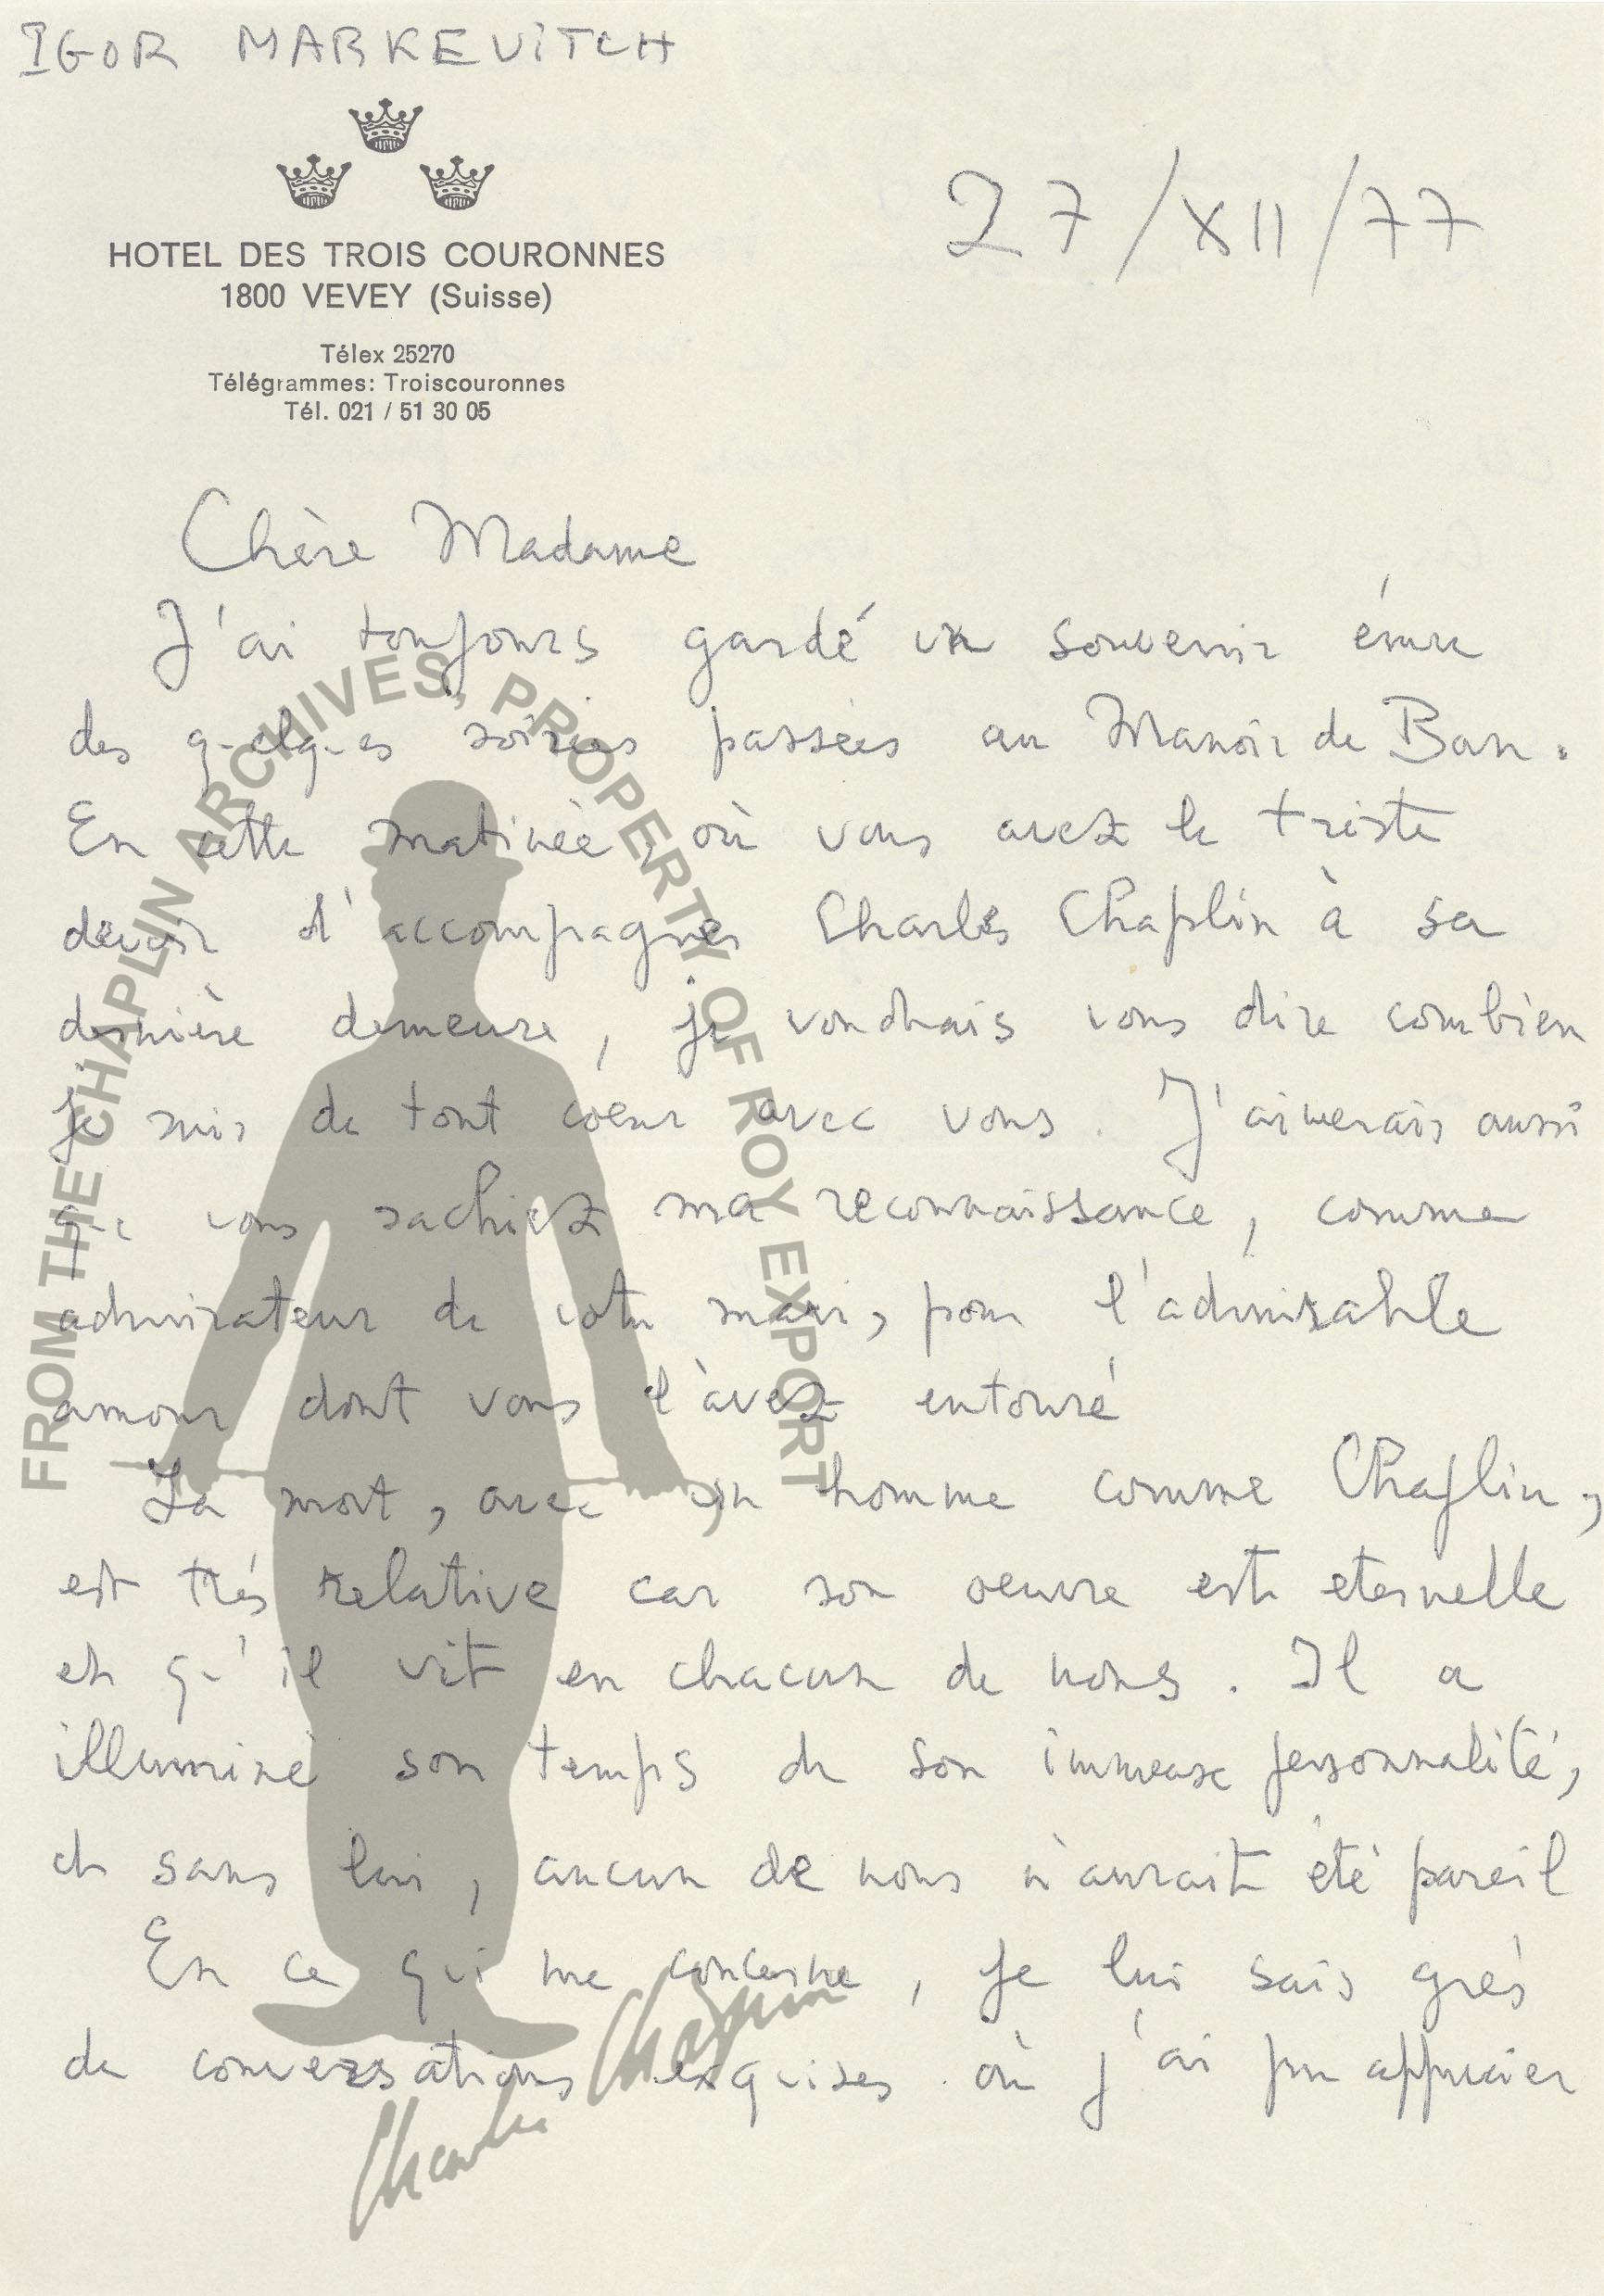 IGOR MARKEVITCH
HOTEL DES TROIS COURONNES
1800 VEVEY (Suisse)
Télex 25270
Télégrammes: Troiscouronnes
Tél. 021 / 51 30 05
27/XII/77
Chère Madame
J'ai toujours gardé un souvenir ému
des quelques soirées passées au Manoir de Ban.
En cette matinée, où vous avez le triste
devoir d'accompagner Charles Chaplin à sa
dernière demeure, je voudrais vous dire combien
je suis de tout coeur avec vous. J'aimerais aussi
que vous sachiez ma reconnaissance, comme
admirateur de votre mari, pour l'admirable
amour dont vous l'avez entouré
La mort, avec un homme comme Chaplin,
est très relative car son oeuvre est eternelle
et qu'il vit en chacun de nous. Il a
illuminé son temps de son immense personnalité,
et sans lui, aucun de nous n'aurait été pareil
En ce qui me concerne, je lui sais grès
de conversations exquises où j'ai pu apprécier
FROM THE CHAPLIN ARCHIVES, PROPERTY OF ROY EXPORT
Charles Chaplin